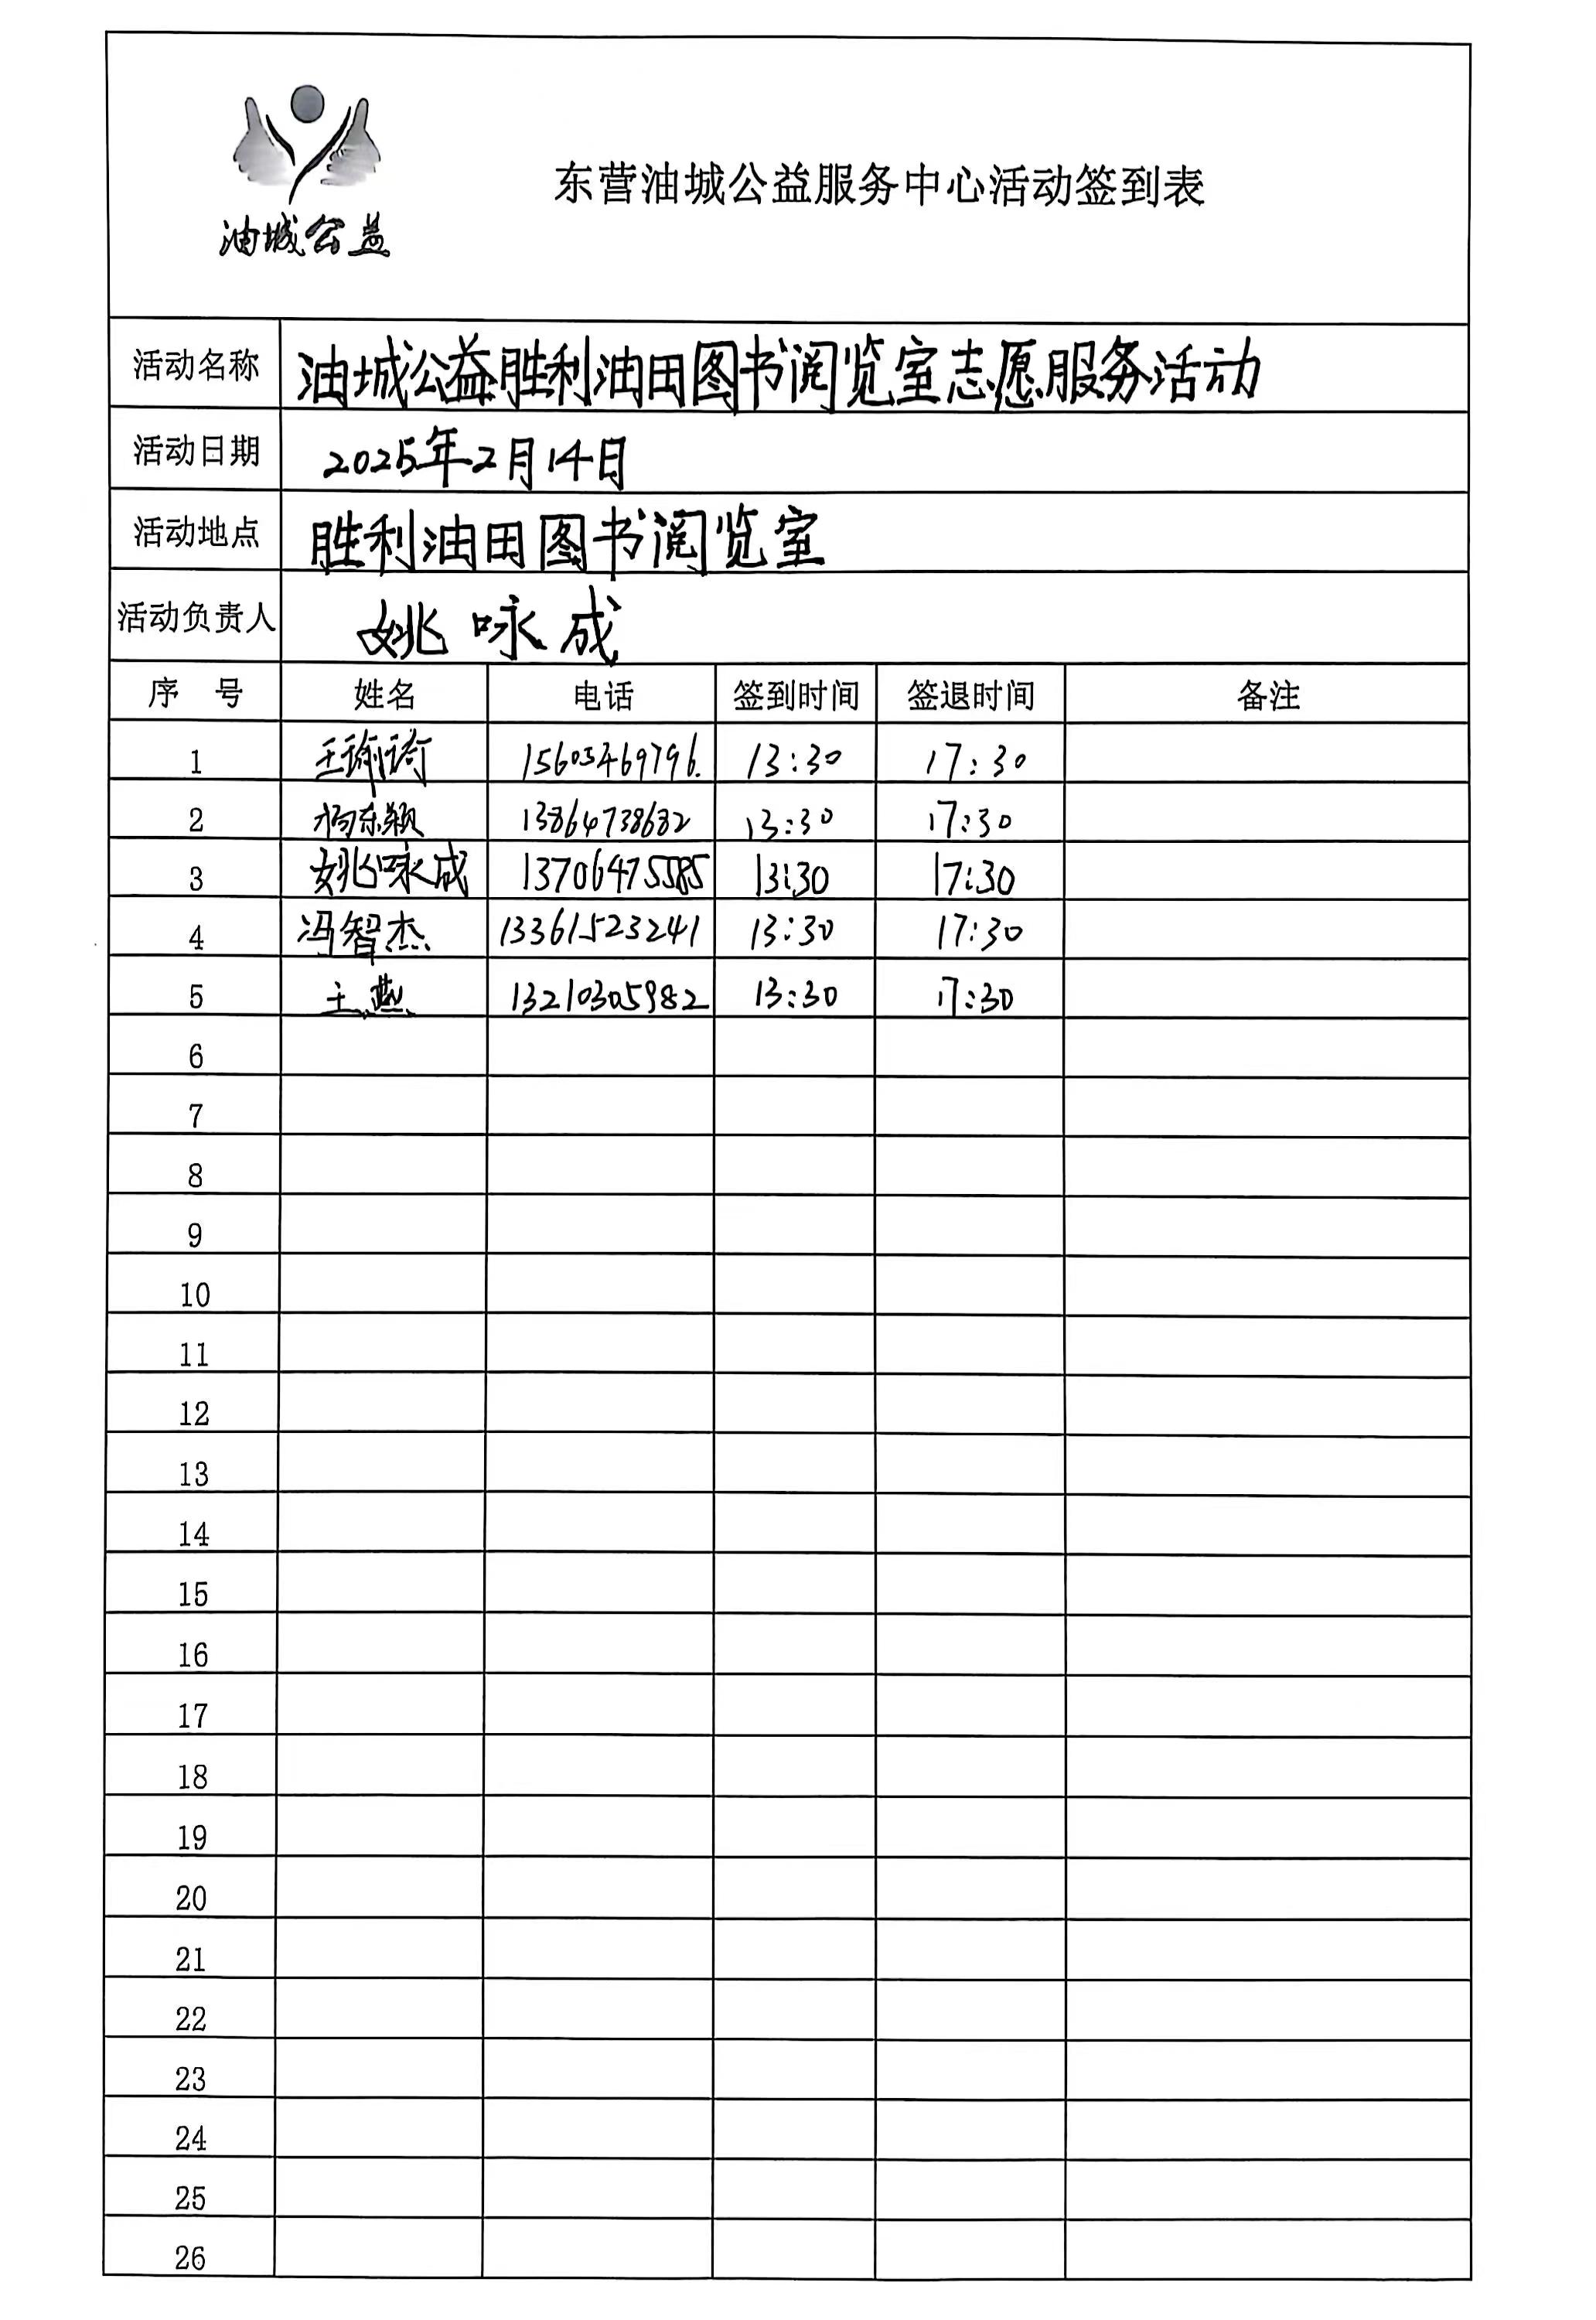 油城公益
东营油城公益服务中心活动签到表
活动名称 油城公益胜利油田图书阅览室志愿服务活动
活动日期 2025年2月14日
活动地点 胜利油田图书阅览室
活动负责人 姚咏成
序 号 姓名 电话 签到时间 签退时间 备注
1 王瑜琦 15605469796. 13:30 17:30
2 杨东颖 13864738682 13:30 17:30
3 姚咏成 13706475585 13:30 17:30
4 冯智杰 13361523241 13:30 17:30
5 王燕 13210305982 13:30 17:30
6
7
8
9
10
11
12
13
14
15
16
17
18
19
20
21
22
23
24
25
26